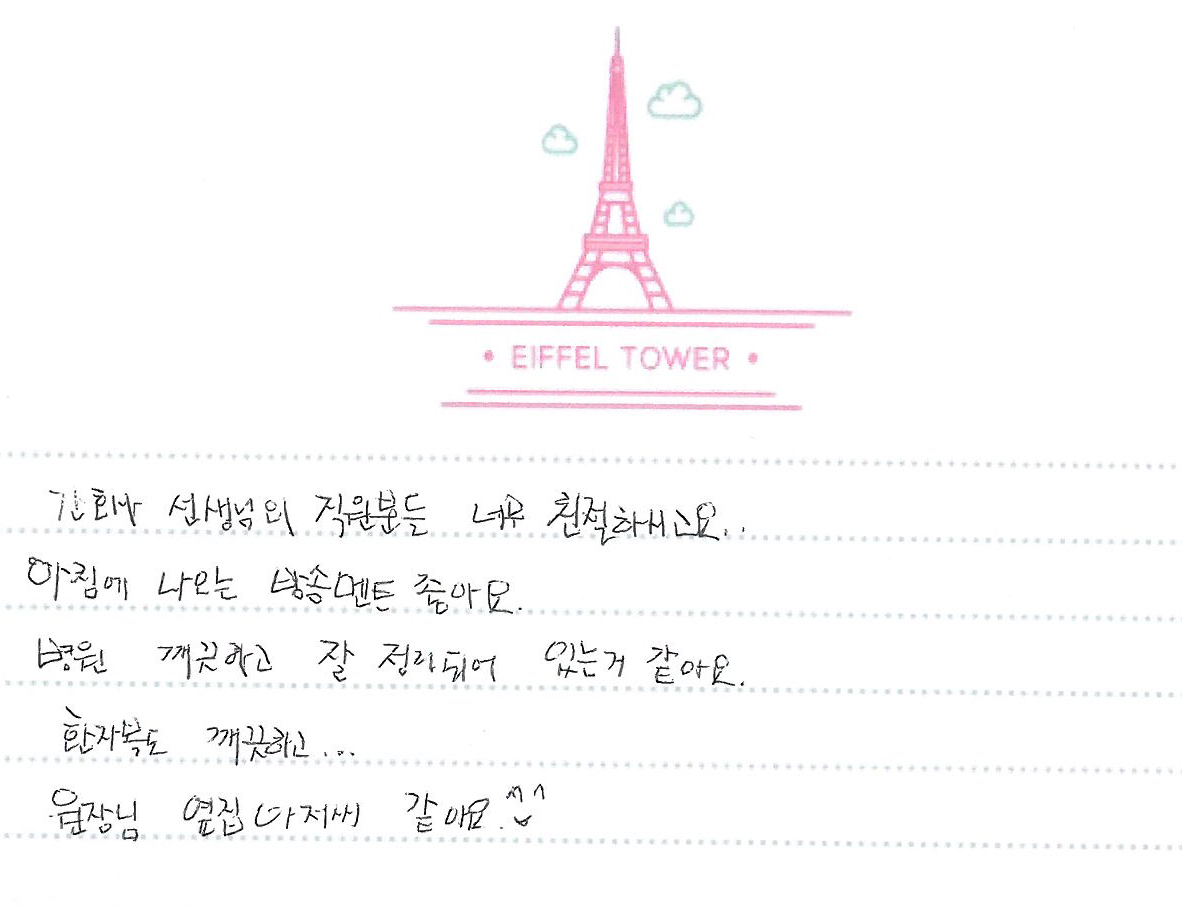 • EIFFEL TOWER •
간호사 선생님외 직원분들 너무 친절하시고요..
아침에 나오는 방송멘트 좋아요.
병원 깨끗하고 잘 정리되어 있는거 같아요.
환자복도 깨끗하고...
원장님 옆집 아저씨 같아요.^^